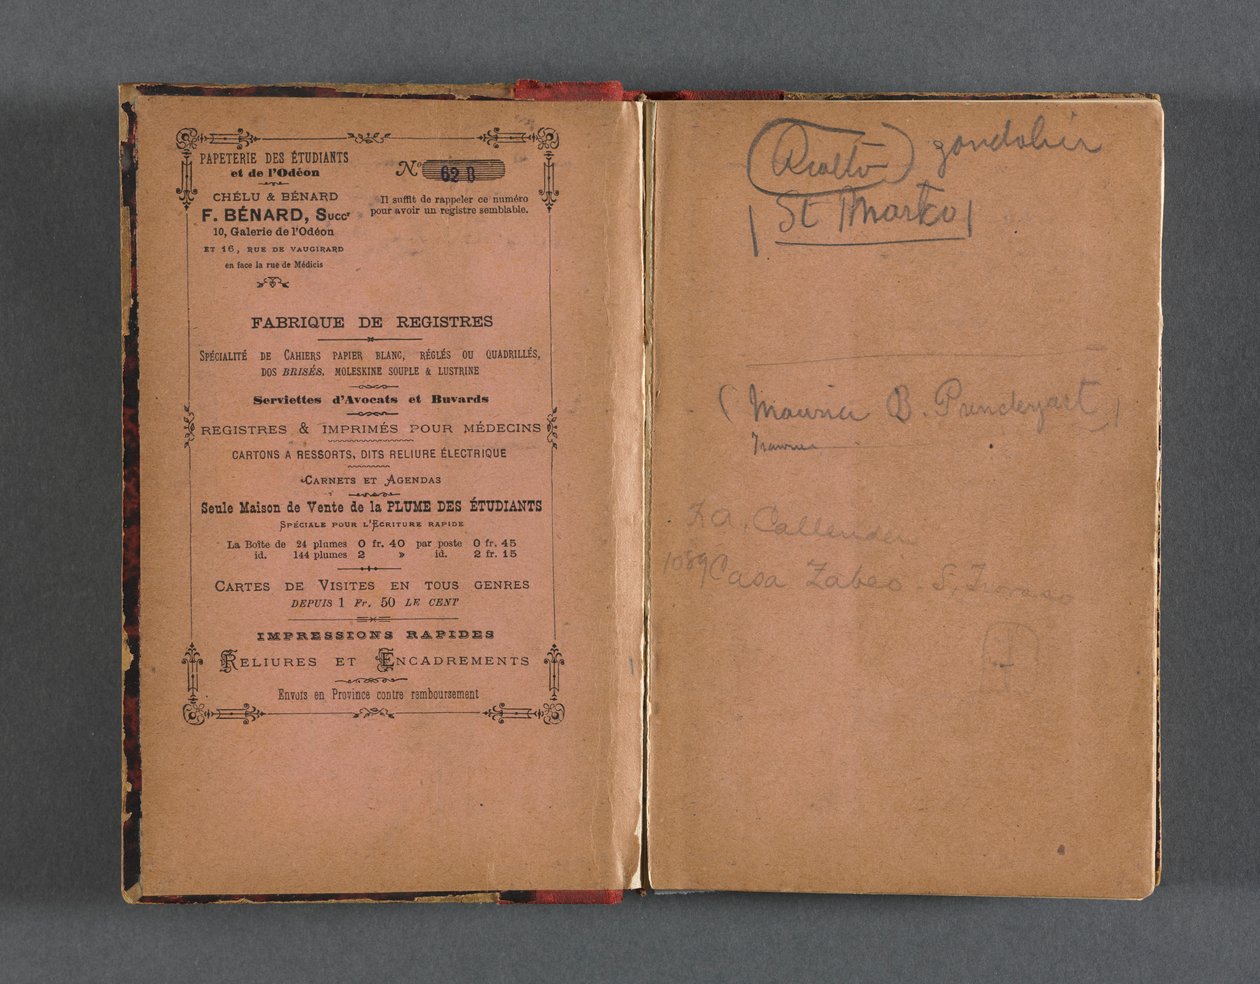 PAPETERIE DES ÉTUDIANTS
et de l'Odéon
CHÉLU & BÉNARD
F. BÉNARD, Succr
10, Galerie de l'Odéon
ET 16, RUE DE VAUGIRARD
en face la rue de Médicis
No 62 B
Il suffit de rappeler ce numéro
pour avoir un registre semblable.
FABRIQUE DE REGISTRES
SPÉCIALITÉ DE CAHIERS PAPIER BLANC, RÉGLÉS OU QUADRILLÉS,
DOS BRISÉS, MOLESKINE SOUPLE & LUSTRINE
Serviettes d'Avocats et Buvards
REGISTRES & IMPRIMÉS POUR MÉDECINS
CARTONS A RESSORTS, DITS RELIURE ÉLECTRIQUE
CARNETS ET AGENDAS
Seule Maison de Vente de la PLUME DES ÉTUDIANTS
SPÉCIALE POUR L'ÉCRITURE RAPIDE
La Boîte de 24 plumes 0 fr. 40 par poste 0 fr. 45
id. 144 plumes 2 » id. 2 fr. 15
CARTES DE VISITES EN TOUS GENRES
DEPUIS 1 Fr. 50 LE CENT
IMPRESSIONS RAPIDES
RELIURES ET ENCADREMENTS
Envois en Province contre remboursement
(Rialto) gondolier
St Marko
(Maurice B. Prendergast)
Callender
1089 Casa Zabeo. S.